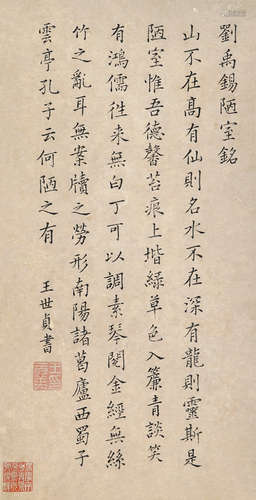 劉禹錫陋室銘
山不在髙有仙則名水不在深有龍則靈斯是
陋室惟吾德馨苔痕上堦綠草色入簾青談笑
有鴻儒徃來無白丁可以調素琴閱金經無絲
竹之亂耳無案牘之勞形南陽諸葛廬西蜀子
雲亭孔子云何陋之有
王世貞書